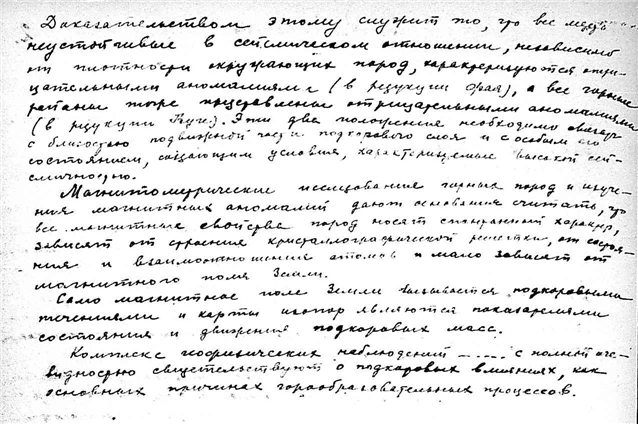 Доказательством этому служит то, что все места
неустойчивые в сейсмическом отношении, независимо
от плотности окружающих пород, характеризуются отри-
цательными аномалиями (в редукции Фая), а все горные
районы тоже представлены отрицательными аномалиями
(в редукции Буге). Эти два положения необходимо связать
с близостью подвижной части подкорового слоя и с особым его
состоянием, создающим условия, характеризуемые высокой сей-
смичностью.
Магнитометрические исследования горных пород и изуче-
ния магнитных аномалий дают основания считать, что
все магнитные свойства пород носят спонтанный характер,
зависят от строения кристаллографической решетки, от состоя-
ния и взаимоотношения атомов и мало зависят от
магнитного поля Земли.
Само магнитное поле Земли вызывается подкоровыми
течениями и карты изопор являются показателями
состояния и движения подкоровых масс.
Комплекс геофизических наблюдений ..... с полной оче-
видностью свидетельствуют о подкоровых влияниях, как
основных причинах горообразовательных процессов.